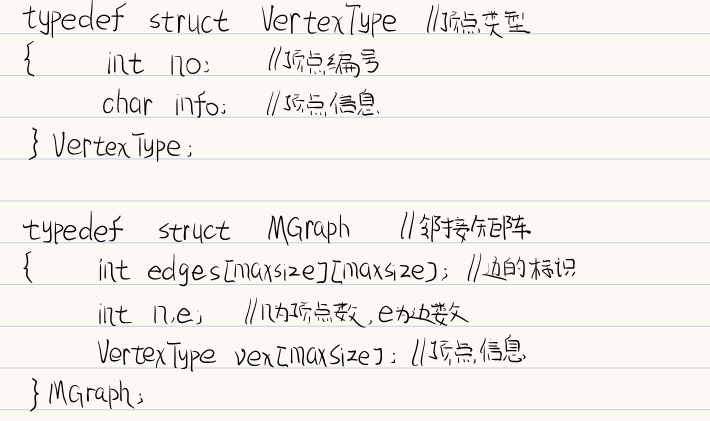 typedef struct VertexType //顶点类型
{ int no; //顶点编号
char info; //顶点信息
} VertexType;
typedef struct MGraph //邻接矩阵
{ int edges[maxsize][maxsize]; //边的标识
int n,e; //n为顶点数,e为边数
VertexType vex[maxsize]; //顶点信息
} MGraph;